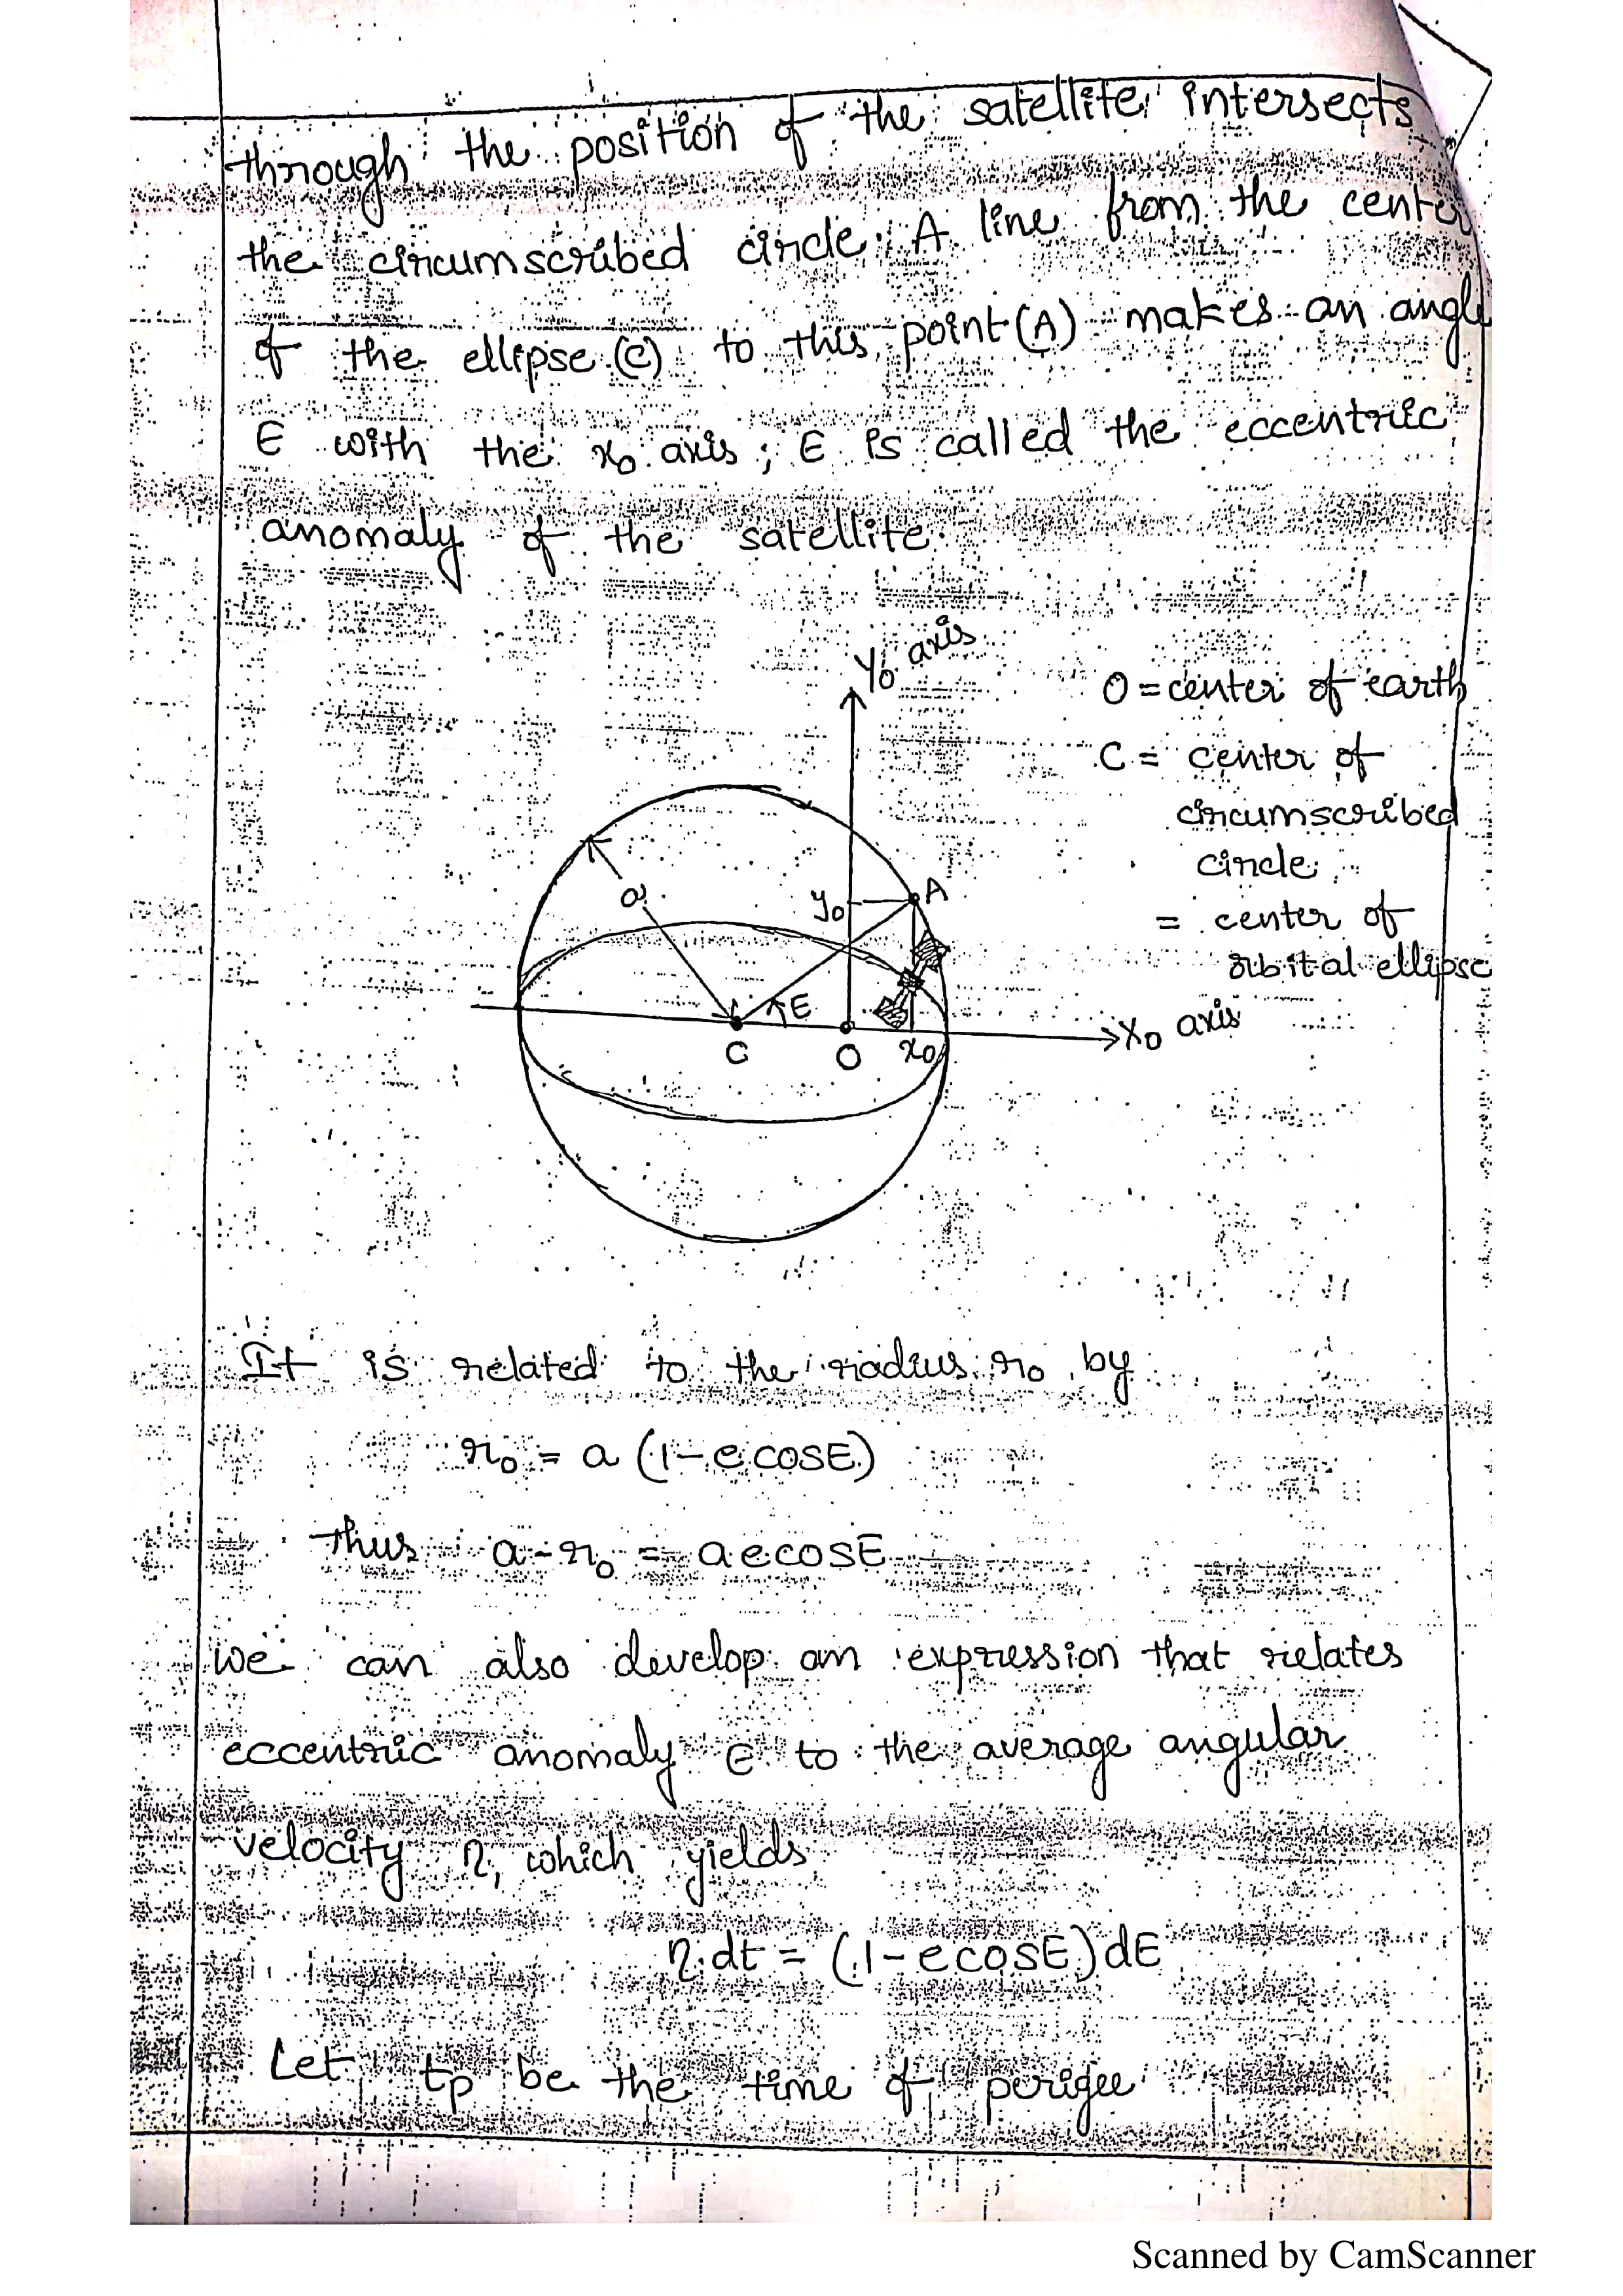 through the position of the satellite intersects
the circumscribed circle. A line from the center
of the ellipse (C) to this point (A) makes an angle
E with the x₀ axis; E is called the eccentric
anomaly of the satellite.
Y₀ axis
O = center of earth
C = center of
circumscribed
circle
= center of
orbital ellipse
a
y₀
A
E
C
O
x₀
X₀ axis
It is related to the radius r₀ by
r₀ = a (1-e cosE)
Thus a - r₀ = a e cosE
we can also develop an expression that relates
eccentric anomaly E to the average angular
velocity η, which yields
η dt = (1-e cosE) dE
Let tp be the time of perigee
Scanned by CamScanner